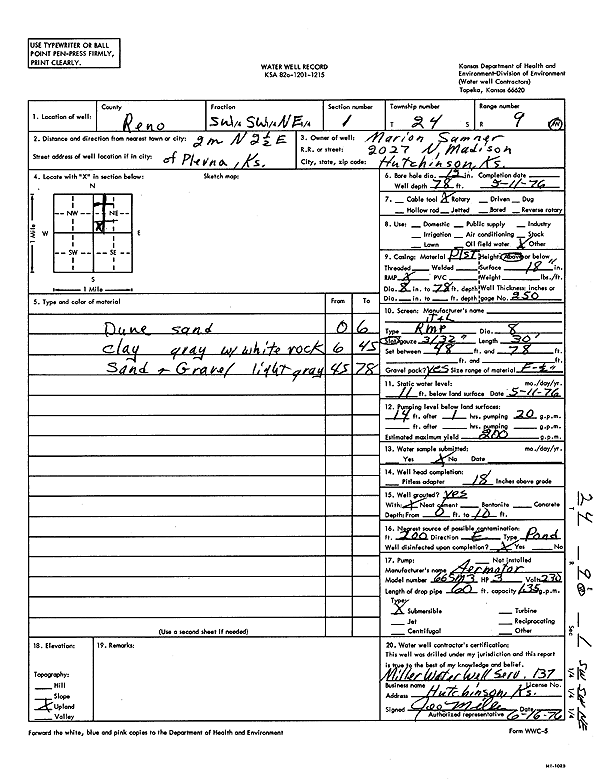 USE TYPEWRITER OR BALL
POINT PEN-PRESS FIRMLY,
PRINT CLEARLY.
WATER WELL RECORD
KSA 82a-1201-1215
Kansas Department of Health and
Environment-Division of Environment
(Water well Contractors)
Topeka, Kansas 66620
1. Location of well: County Reno Fraction SW1/4 SW1/4 NE1/4 Section number 1 Township number T 24 S Range number R 9 W
2. Distance and direction from nearest town or city: 2m N 2½ E
of Plevna, Ks.
Street address of well location if in city:
3. Owner of well: Marion Sumner
R.R. or street: 2027 N, Madison
City, state, zip code: Hutchinson, Ks.
4. Locate with "X" in section below: Sketch map:
N
NW NE
W E
SW SE
S
1 Mile
1 Mile
X
5. Type and color of material From To
Dune sand 0 6
clay gray w/ white rock 6 45
Sand + Gravel light gray 45 78
(Use a second sheet if needed)
6. Bore hole dia. 12 in. Completion date
Well depth 78 ft. 5-11-76
7. Cable tool X Rotary Driven Dug
Hollow rod Jetted Bored Reverse rotary
8. Use: Domestic Public supply Industry
Irrigation Air conditioning Stock
Lawn Oil field water X Other
9. Casing: Material Plst Height: Above or below
Threaded Welded Surface 18 in.
RMP X PVC Weight lbs./ft.
Dia. 8 in. to 78 ft. depth Wall Thickness: inches or
Dia. in. to ft. depth gage No. .250
10. Screen: Manufacturer's name
Type RMP Dia. 8
Slot/gauze 3/32" Length 30'
Set between 48 ft. and 78 ft.
ft. and ft.
Gravel pack? yes Size range of material
11. Static water level: mo./day/yr.
11 ft. below land surface Date 5-11-76
12. Pumping level below land surfaces:
14 ft. after 1 hrs. pumping 20 g.p.m.
ft. after hrs. pumping g.p.m.
Estimated maximum yield 200 g.p.m.
13. Water sample submitted: mo./day/yr.
Yes X No Date
14. Well head completion:
Pitless adapter 18 Inches above grade
15. Well grouted? yes
With: X Neat cement Bentonite Concrete
Depth: From 0 ft. to 10 ft.
16. Nearest source of possible contamination:
ft. 200 Direction E Type Pond
Well disinfected upon completion? X Yes No
17. Pump: Not installed
Manufacturer's name Aermotor
Model number HP 3 Volts 230
Length of drop pipe 60 ft. capacity 135 g.p.m.
Type:
X Submersible Turbine
Jet Reciprocating
Centrifugal Other
18. Elevation:
Topography:
Hill
Slope
X Upland
Valley
19. Remarks:
20. Water well contractor's certification:
This well was drilled under my jurisdiction and this report
is true to the best of my knowledge and belief.
Miller Water Well Serv. 137
Business name License No.
Address Hutchinson, Ks.
Signed Date 6-16-76
Authorized representative
T 24 - R 9 W - Sec 1 SW SW NE
1/4 1/4 1/4
Forward the white, blue and pink copies to the Department of Health and Environment
Form WWC-5